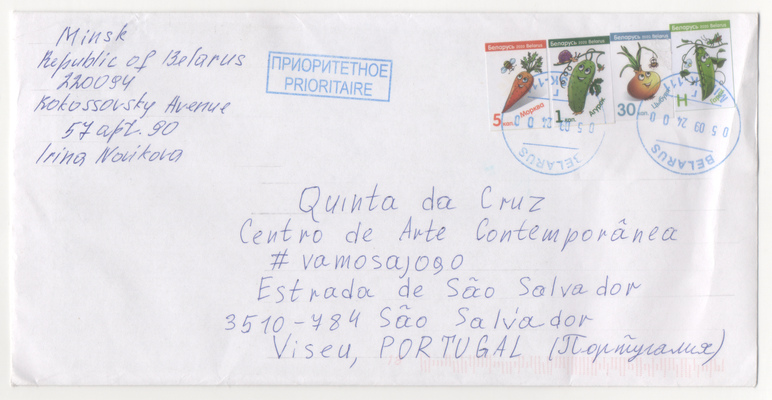 Minsk
Republic of Belarus
220094
Rokossovsky Avenue
57 apt. 90
Irina Novikova
ПРИОРИТЕТНОЕ
PRIORITAIRE
Беларусь 2022 Belarus
5 коп. Морква
Беларусь 2022 Belarus
1 коп. Агурок
Беларусь 2022 Belarus
30 коп. Цыбуля
Беларусь 2022 Belarus
H
BELARUS
05 03 24
BELARUS
05 03 24
Quinta da Cruz
Centro de Arte Contemporânea
#vamosajogo
Estrada de São Salvador
3510-784 São Salvador
Viseu, PORTUGAL (Португалия)